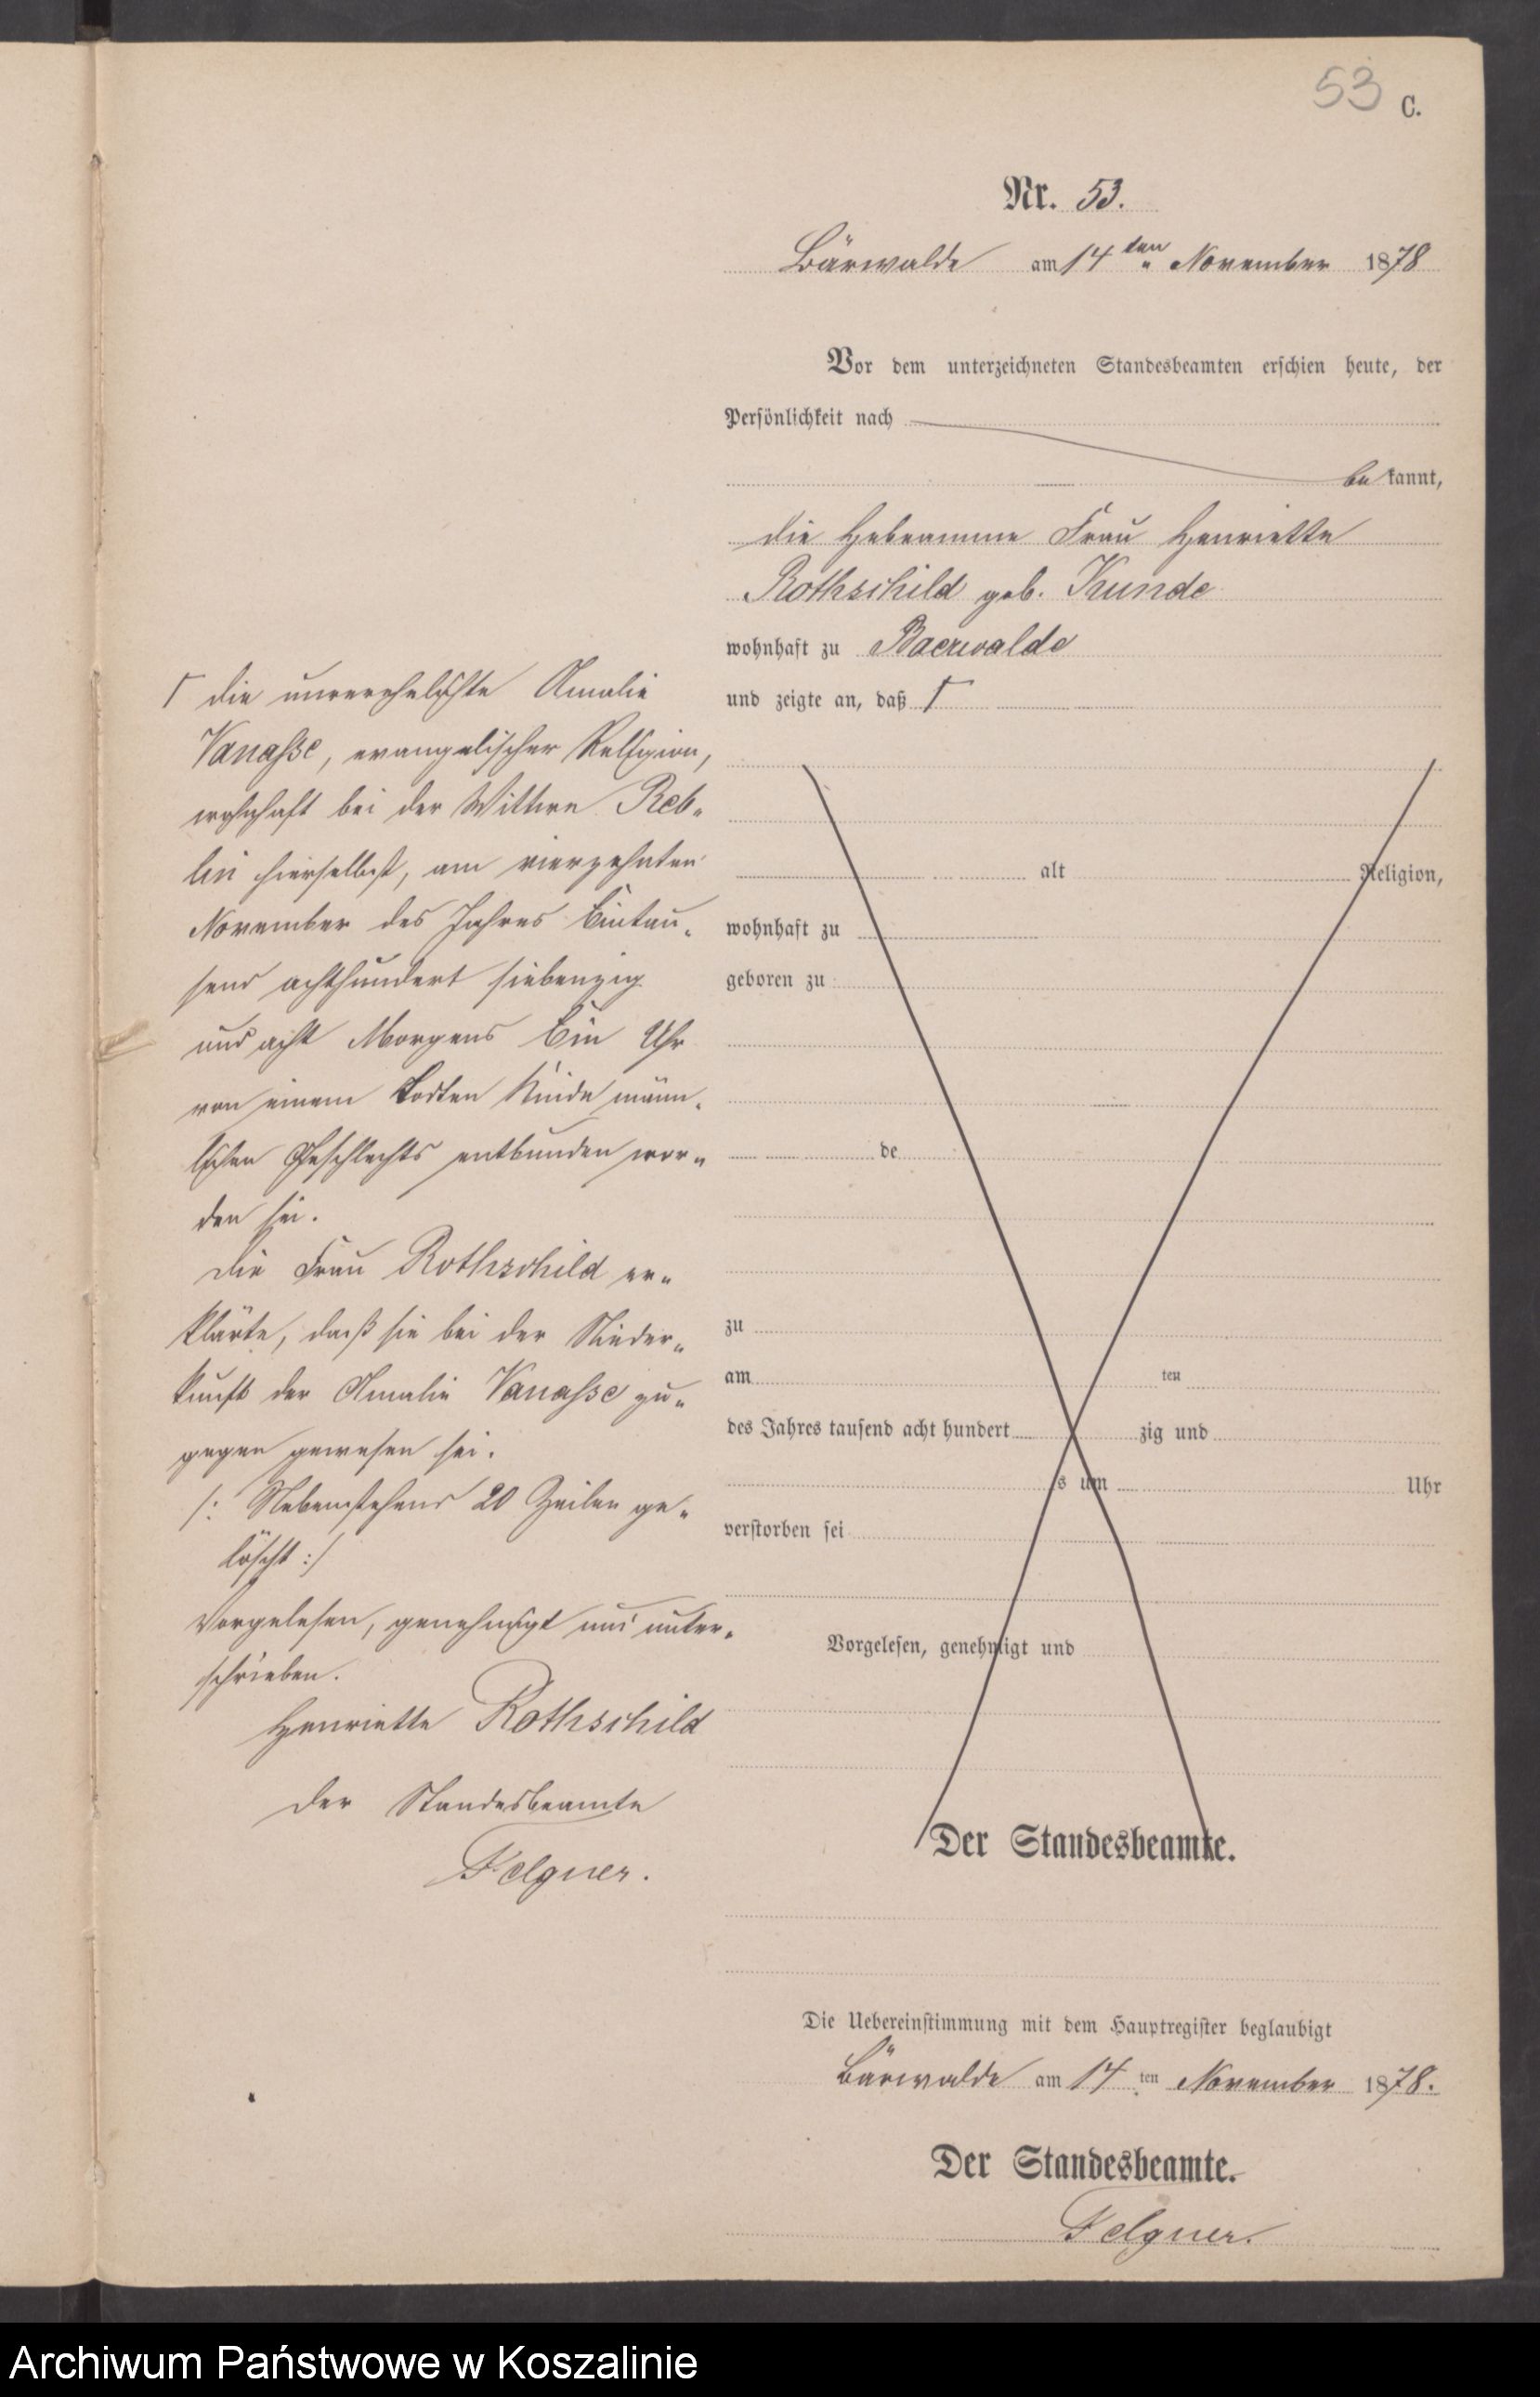 53 C.
Nr. 53.
Bärwalde am 14ten November 1878
Vor dem unterzeichneten Standesbeamten erschien heute, der
Persönlichkeit nach
bekannt,
die Hebeamme Frau Henriette
Rothschild geb. Kunde
wohnhaft zu Baerwalde
und zeigte an, daß Γ
Γ die unverehelichte Amalie
Vanaßse, evangelischer Religion,
wohnhaft bei der Wittwe Reb-
lin hierselbst, am vierzehnten
November des Jahres Eintau-
send achthundert siebenzig
und acht Morgens Ein Uhr
von einem todten Kinde männ-
lichen Geschlechts entbunden wor-
den sei.
Die Frau Rothschild er-
klärte, daß sie bei der Nieder-
kunft der Amalie Vanaßse zu-
gegen gewesen sei.
/: Nebenstehend 20 Zeilen ge-
löscht :/
Vorgelesen, genehmigt und unter-
schrieben.
Henriette Rothschild
Der Standesbeamte
Felgner.
alt Religion,
wohnhaft zu
geboren zu
de
zu
am ten
des Jahres tausend acht hundert zig und
s um Uhr
verstorben sei
Vorgelesen, genehmigt und
Der Standesbeamte.
Die Uebereinstimmung mit dem Hauptregister beglaubigt
Bärwalde am 14 ten November 1878.
Der Standesbeamte.
Felgner.
Archiwum Państwowe w Koszalinie